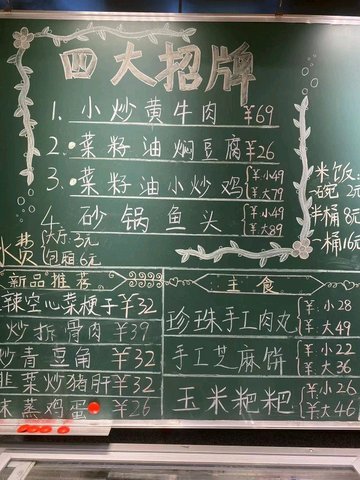 四大招牌
1. 小炒黄牛肉 ¥69
2.·菜籽油焖豆腐 ¥26
3.·菜籽油小炒鸡 ¥小49 ¥大79
4. 砂锅鱼头 ¥小49 ¥大89
米饭:
一碗 2元
半桶 8元
一桶16元
水费 大厅:3元
包厢 6元
新品推荐
辣空心菜梗子 ¥32
炒拆骨肉 ¥39
炒青豆角 ¥32
韭菜炒猪肝 ¥32
蒸鸡蛋 ¥26
主食
珍珠手工肉丸 ¥:小28 ¥:大49
手工芝麻饼 ¥:小22 ¥:大36
玉米粑粑 ¥:小26 ¥:大46